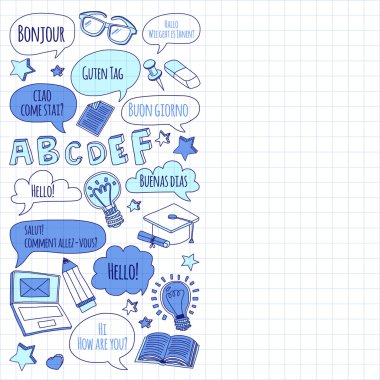 Bonjour
Hallo
Wie geht es Ihnen?
Guten Tag
Ciao
come stai?
Buon giorno
ABCDEF
Hello!
Buenas dias
Salut!
Comment allez-vous?
Hello!
Hi
How are you?